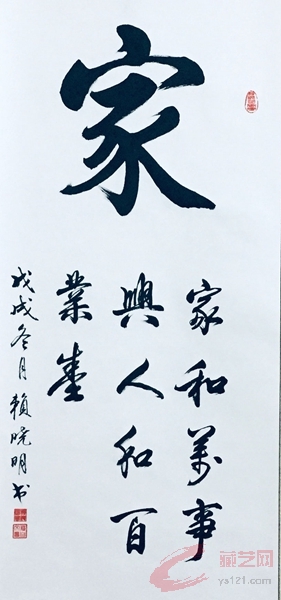 家
家和萬事
興人和百
業盛
戊戌冬月賴曉明书
藏艺网
ys121.com